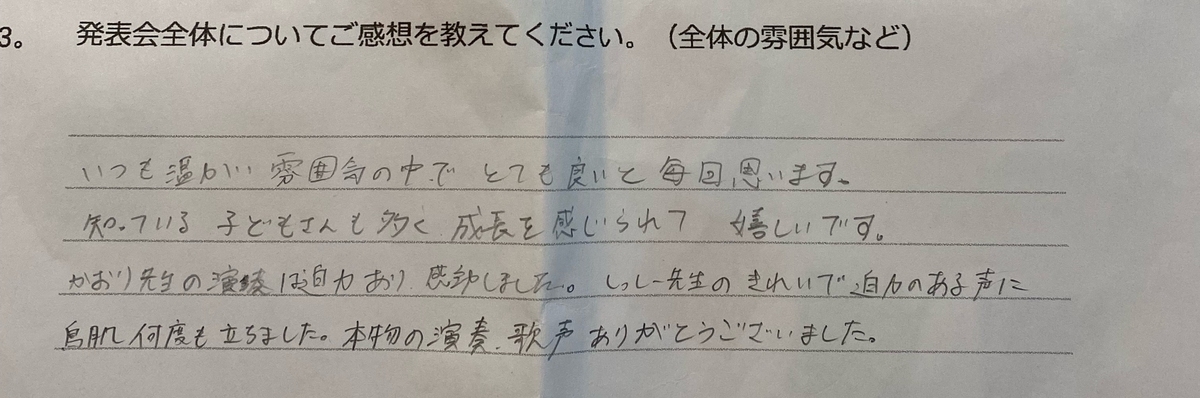 3。 発表会全体についてご感想を教えてください。（全体の雰囲気など）
いつも温かい雰囲気の中で とても良いと毎回思います。
知っている子どもさんも多く 成長を感じられて 嬉しいです。
かおり先生の演奏は迫力あり 感動しました。しっしー先生のきれいで迫力のある声に
鳥肌何度も立ちました。本物の演奏、歌声ありがとうございました。